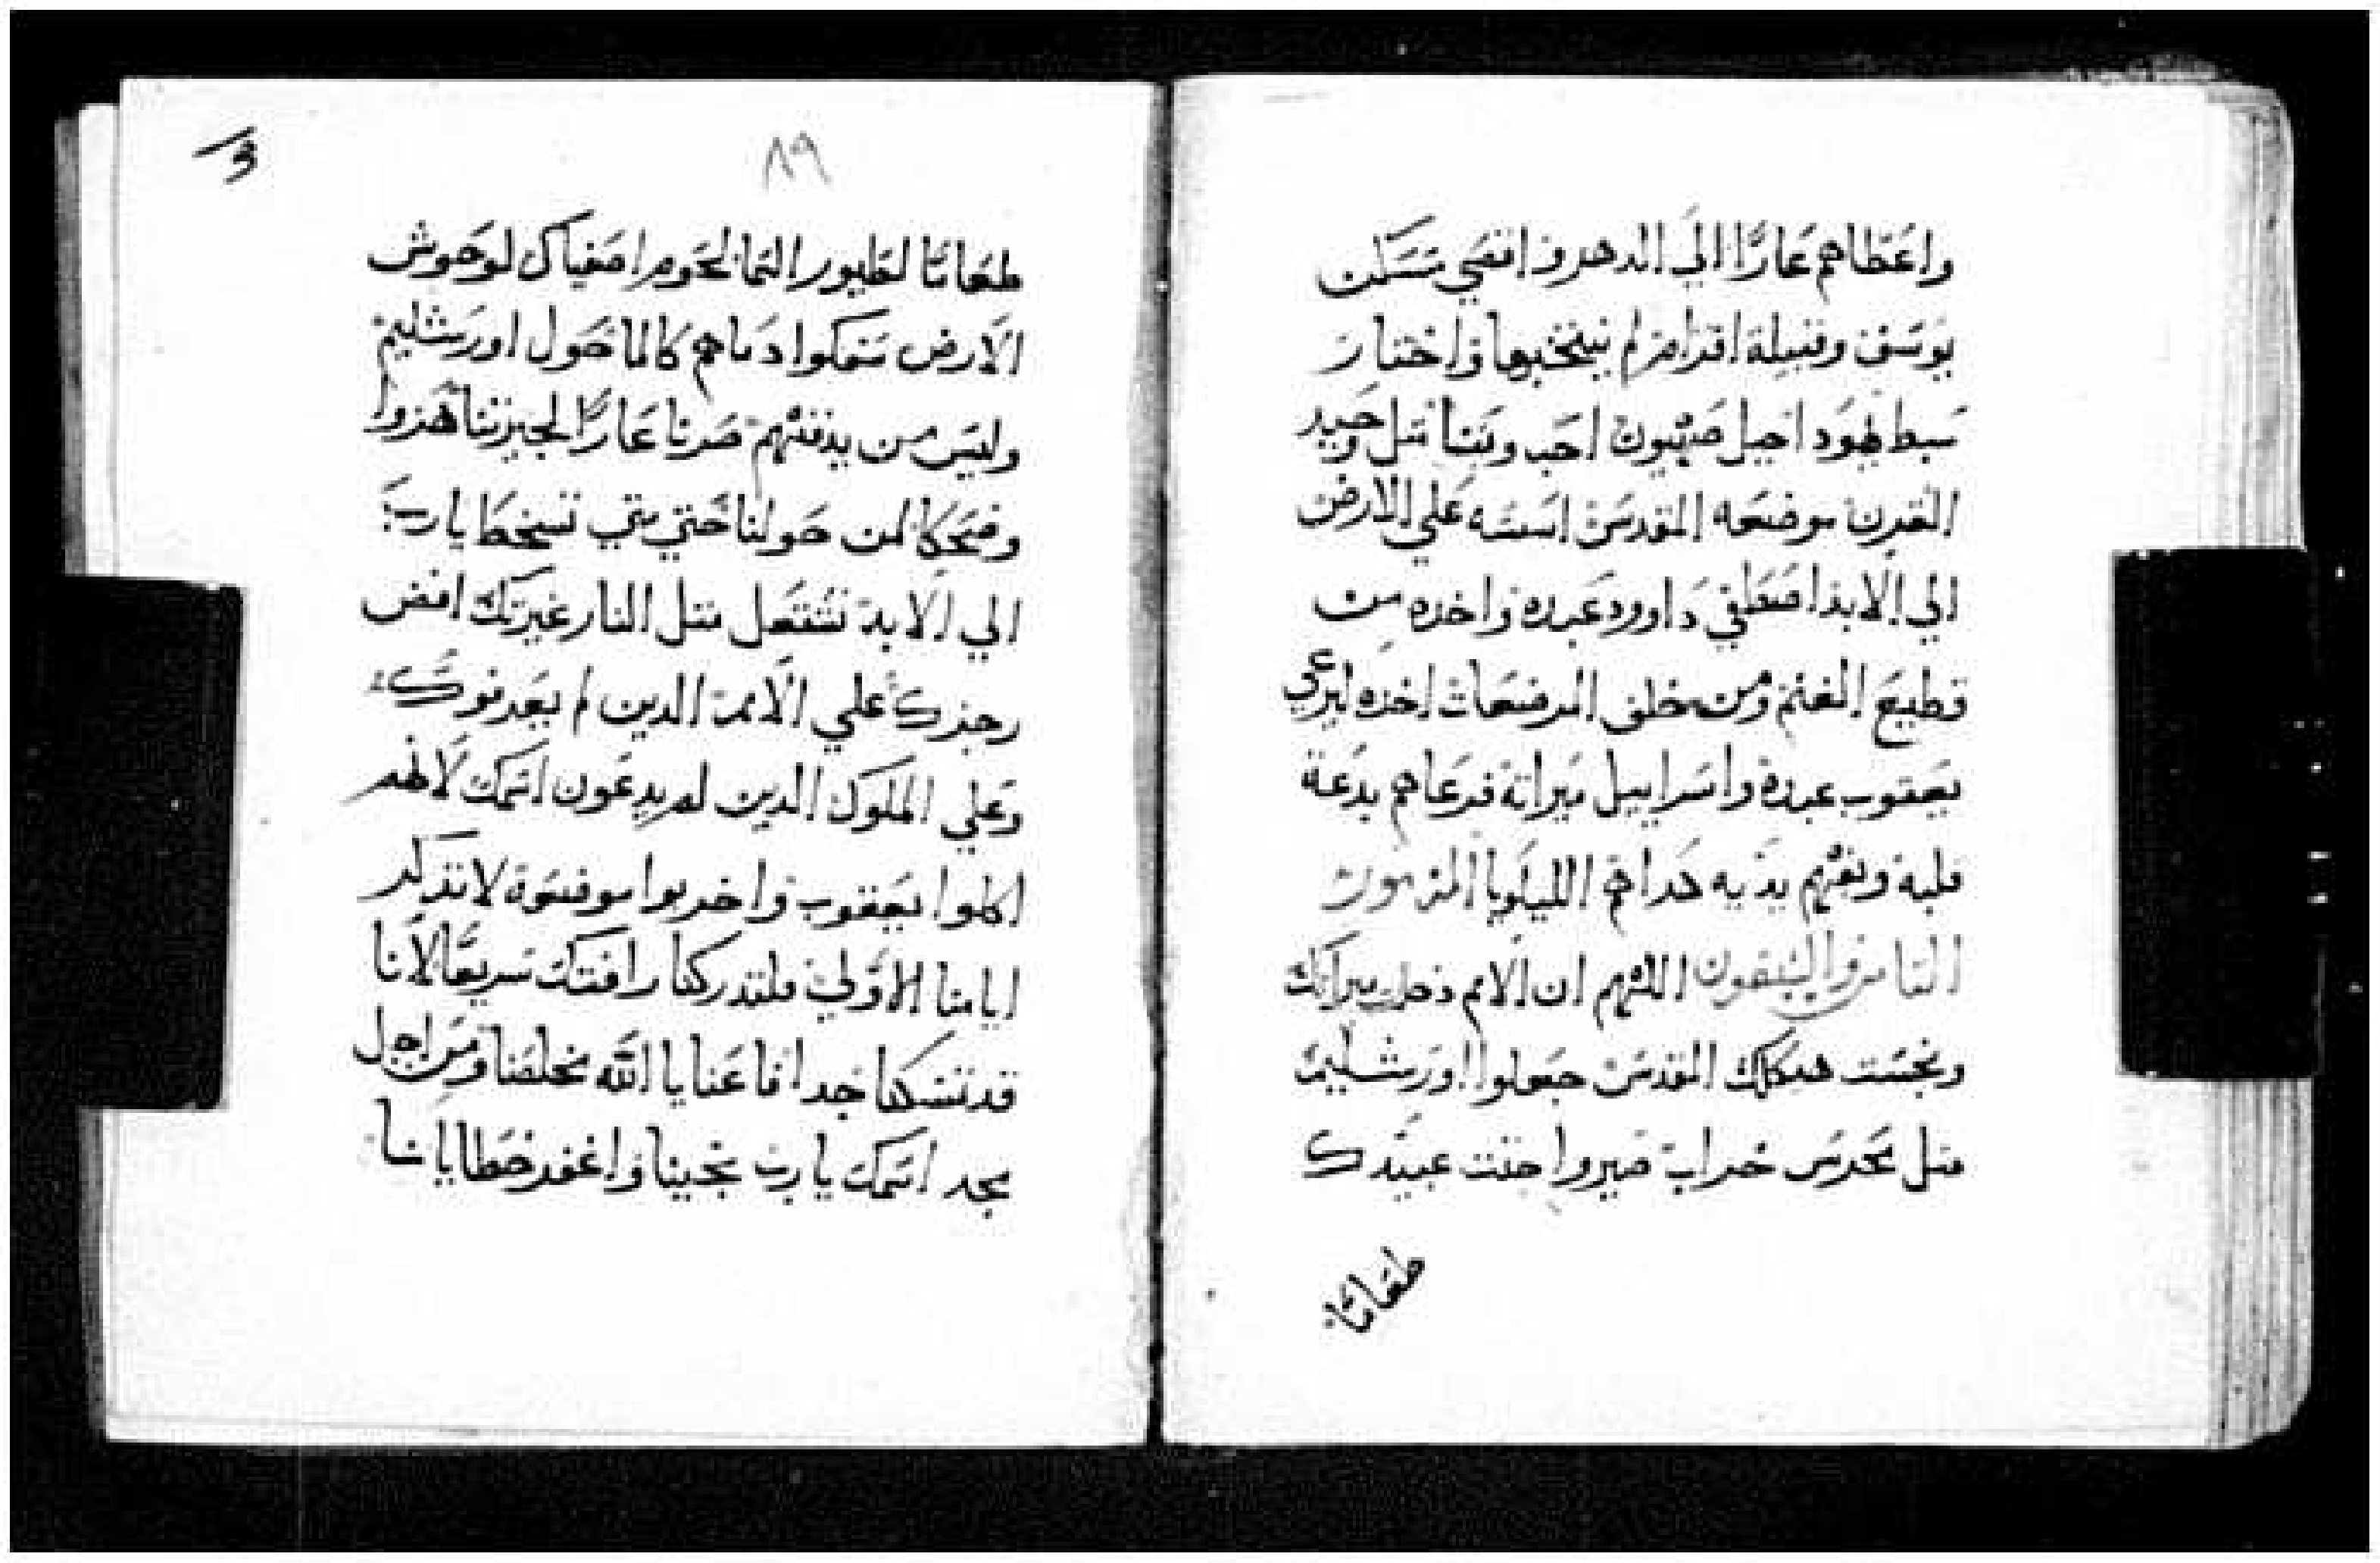 واعطاهم عارًا الي الدهر واقصي مسكن
يوسف وقبيلة افرام لم ينتخبها واختار
سبط يهودا جبل صهيون احب وبنا مثل وحيد
القرن موضعه المقدس اسسه علي الارض
الي الابد اصطفي داوود عبده واخده من
قطيع الغنم ومن خلف المرضعات اخده ليرعي
يعقوب عبده واسراييل ميراثه فرعاهم بدعة
قلبه وبفهم يديه هداهم الليلويا المزمور
الثامن والسبعون اللهم ان الامم دخلت ميراثك
ونجست هيكلك المقدس جعلوا اورشليم
مثل محرس خراب صيروا جثت عبيدك
طعامًا
٨٩
طعامًا لطيور السما لحوم اصفياك لوحوش
الارض سفكوا دماهم كالما حول اورشليم
وليس من يدفنهم صرنا عارًا لجيرتنا هزوا
وضحكا لمن حولنا حتي متي تسخط يارب
الي الابد تشتعل مثل النار غيرتك افض
رجزك علي الامم الدين لم يعرفوك
وعلي الملوك الدين لم يدعون اسمك لانهم
اكلوا يعقوب واخربوا موضعه لا تذكر
ايامنا الاولي فلتدركنا رافتك سريعًا لاننا
قد تمسكنا جدا فاعنا يا الله مخلصنا ومن اجل
مجد اسمك يا رب نجينا واغفر خطايانا